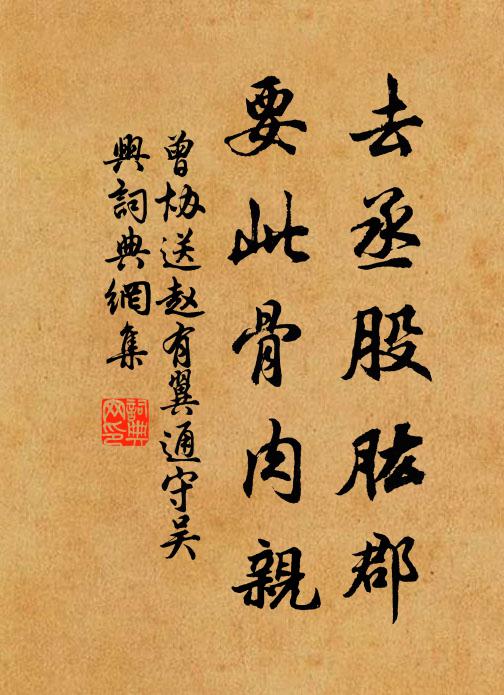 去丞股肱郡
要此骨肉親
曾协送赵有翼通守吴
興詞典網集
詞典
网印